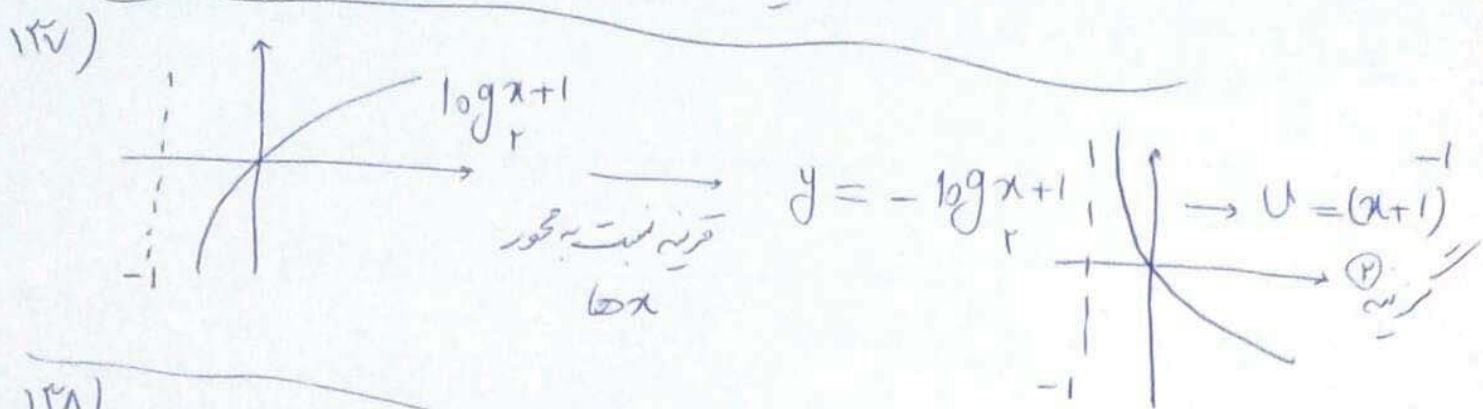 ۱۳۷)
log₂ x+1
-1
قرینه نسبت به محور
xها
y = - log₂ x+1
-1
→ U = (x+1)⁻¹
گزینه ②
۱۳۸)